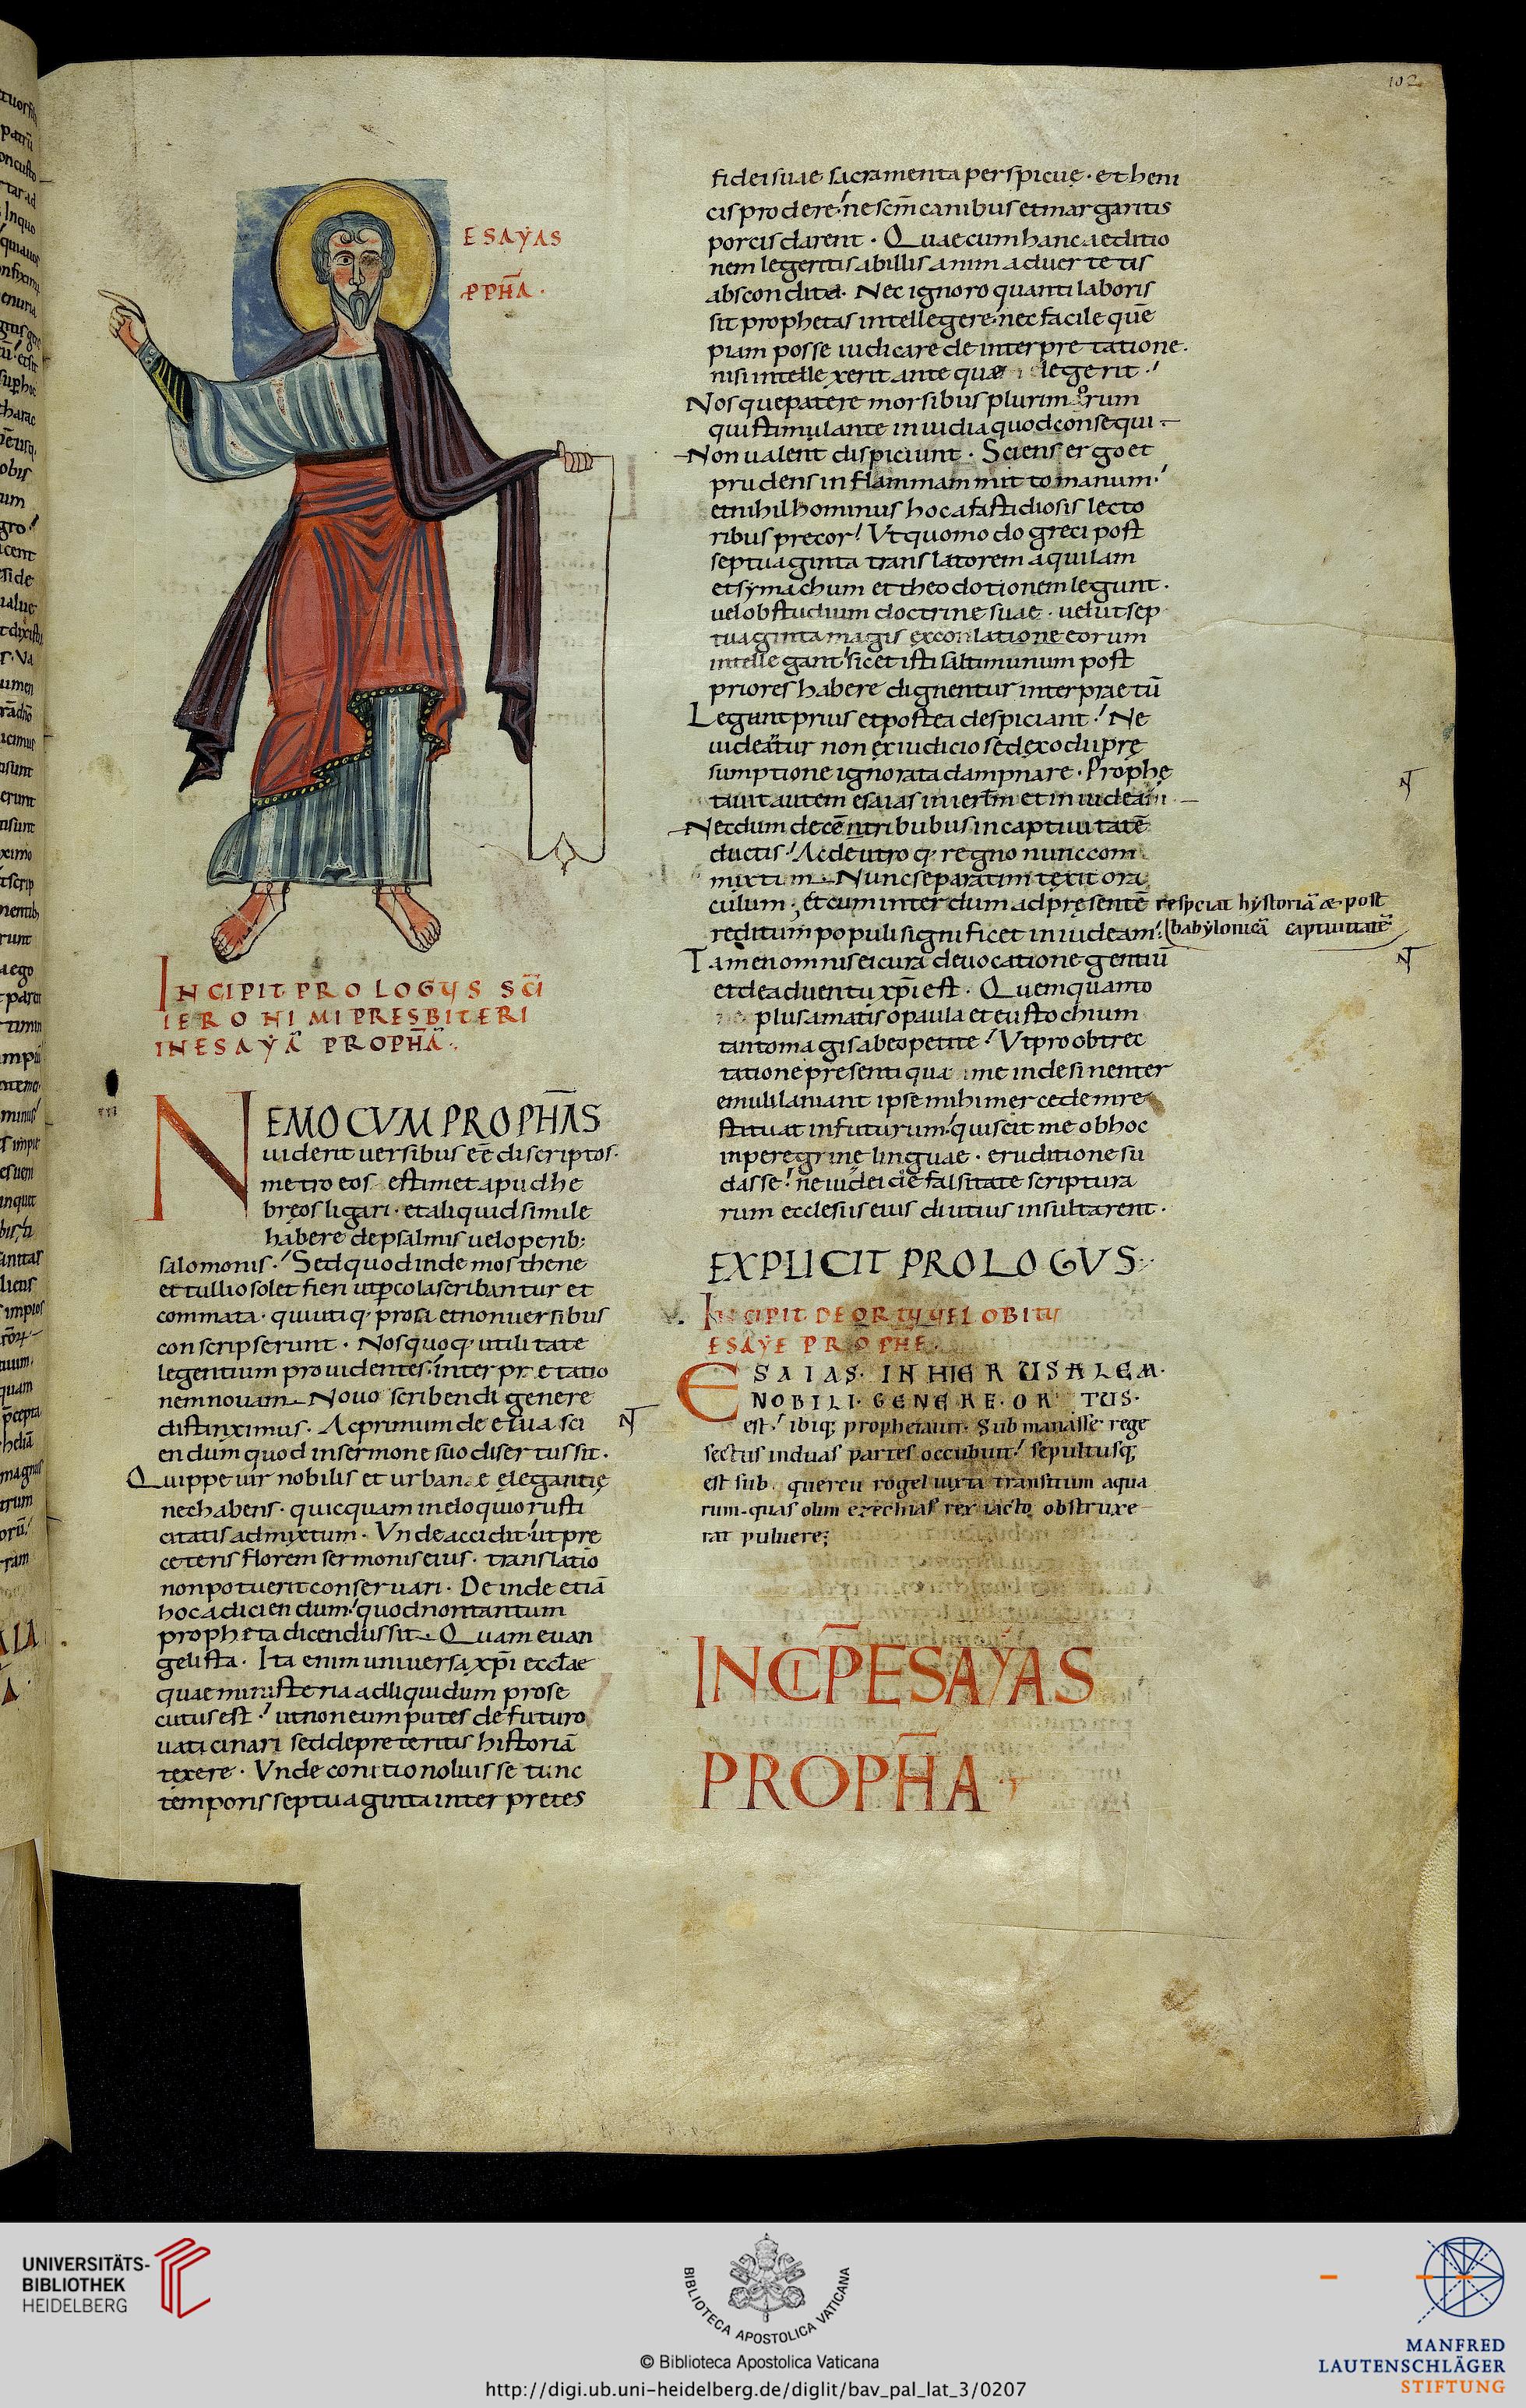 102
ESAYAS
PPHA.
INCIPIT PROLOGUS SCI
IERONIMI PRESBITERI
IN ESAYĀ PROPHĀ.
NEMO CVM PROPHAS
uiderit uersibus eē discriptos.
metro eos estimet apud he
breos ligari. et aliquid simile
habere de psalmis uel operib;
salomonis. Sed quod in demosthene
et tullio solet fieri ut p cola scribantur et
commata. qui utiq; prosa et non uersibus
conscripserunt. Nos quoq; utilitate
legentium prouidentes. interpretatio
nem nouam. Nouo scribendi genere
distinximus. Ac primum de esaia sci
endum quod in sermone suo disertus sit.
Quippe uir nobilis et urbanae elegantię
nec habens. quicquam in eloquio rusti
citatis admyxtum. Vnde accidit. ut pre
ceteris florem sermonis eius. translatio
non potuerit conseruari. Deinde etiā
hoc adiciendum. quod non tantum
propheta dicendus sit. Quam euan
gelista. Ita enim uniuersa xp̄i eccl̄ae
quae mirasteria ad liquidum prose
cutus est. ut non eum putes de futuro
uaticinari sed de preteritis historiā
texere. Vnde conitio noluisse tunc
temporis septuaginta interpretes
fidei suae sacramenta perspicuę. ethem
cis prodere. ne scm̄ canibus et margaritis
porcis darent. Quae cum hanc aeditio
nem legeritis ab illis animaduertetis
abscondita. Nec ignoro quanti laboris
sit prophetas intellegere. nec facile quē
piam posse iudicare de interpretatione.
nisi intellexerit ante quae legerit.
Nosque patere morsibus plurimorum
qui stimulante inuidia quod consequi
Non ualent dispiciunt. Sciens ergo et
prudens in flammam mitto manum.
et nihilhominus hoc a fastidiosis lecto
ribus precor. Vt quomodo greci post
septuaginta translatorem aquilam
et symachum et theodotionem legunt.
uel ob studium doctrine suae. uel ut sep
tuaginta magis ex conlatione eorum
intellegant sic et isti saltim unum post
priores habere dignentur interpraetū
Legant prius et postea despiciant. Ne
uideatur non ex iudicio sed ex odii prę
sumptione ignorata dampnare. Prophe
tauit autem esaias in ierlm̄ et in iudeam
Necdum decē tribubus in captiuitatē
ductis. Ac de utroq; regno nunc com
mixtim. Nunc separatim texit ora
culum; Et cum interdum ad pręsentē respciat hystoriā & post
reditum populi significet in iudeam. babylonicā captiuitatē
Tamen omnis ei cura de uocatione gentiū
et de aduentu xp̄i est. Quem quamto
plus amatis o paula et eustochium
tanto magis ab eo petite. Vt pro obtrec
tatione presenti qua me indesinenter
emuli laniant ipse mihi mercedem re
stituat in futurum. qui scit me ob hoc
in peregrine linguae. eruditione su
dasse. ne iudei de falsitate scriptura
rum ecclesiis eius diutius insultarent.
EXPLICIT PROLOGVS.
INCIPIT DE ORTU UEL OBITU
ESAYE PROPHE.
ESAIAS. IN HIERUSALEM.
NOBILI. GENERE. ORTUS.
est. ibiq; prophetauit. Sub manasse rege
sectus in duas partes occubuit. sepultusq;
est sub quercu rogel iuxta transitum aqua
rum. quas olim ezechias rex iacto obstruxe
rat puluere;
INCIP̄ ESAYAS
PROPHA
UNIVERSITÄTS-
BIBLIOTHEK
HEIDELBERG
BIBLIOTECA APOSTOLICA VATICANA
© Biblioteca Apostolica Vaticana
http://digi.ub.uni-heidelberg.de/diglit/bav_pal_lat_3/0207
MANFRED
LAUTENSCHLÄGER
STIFTUNG